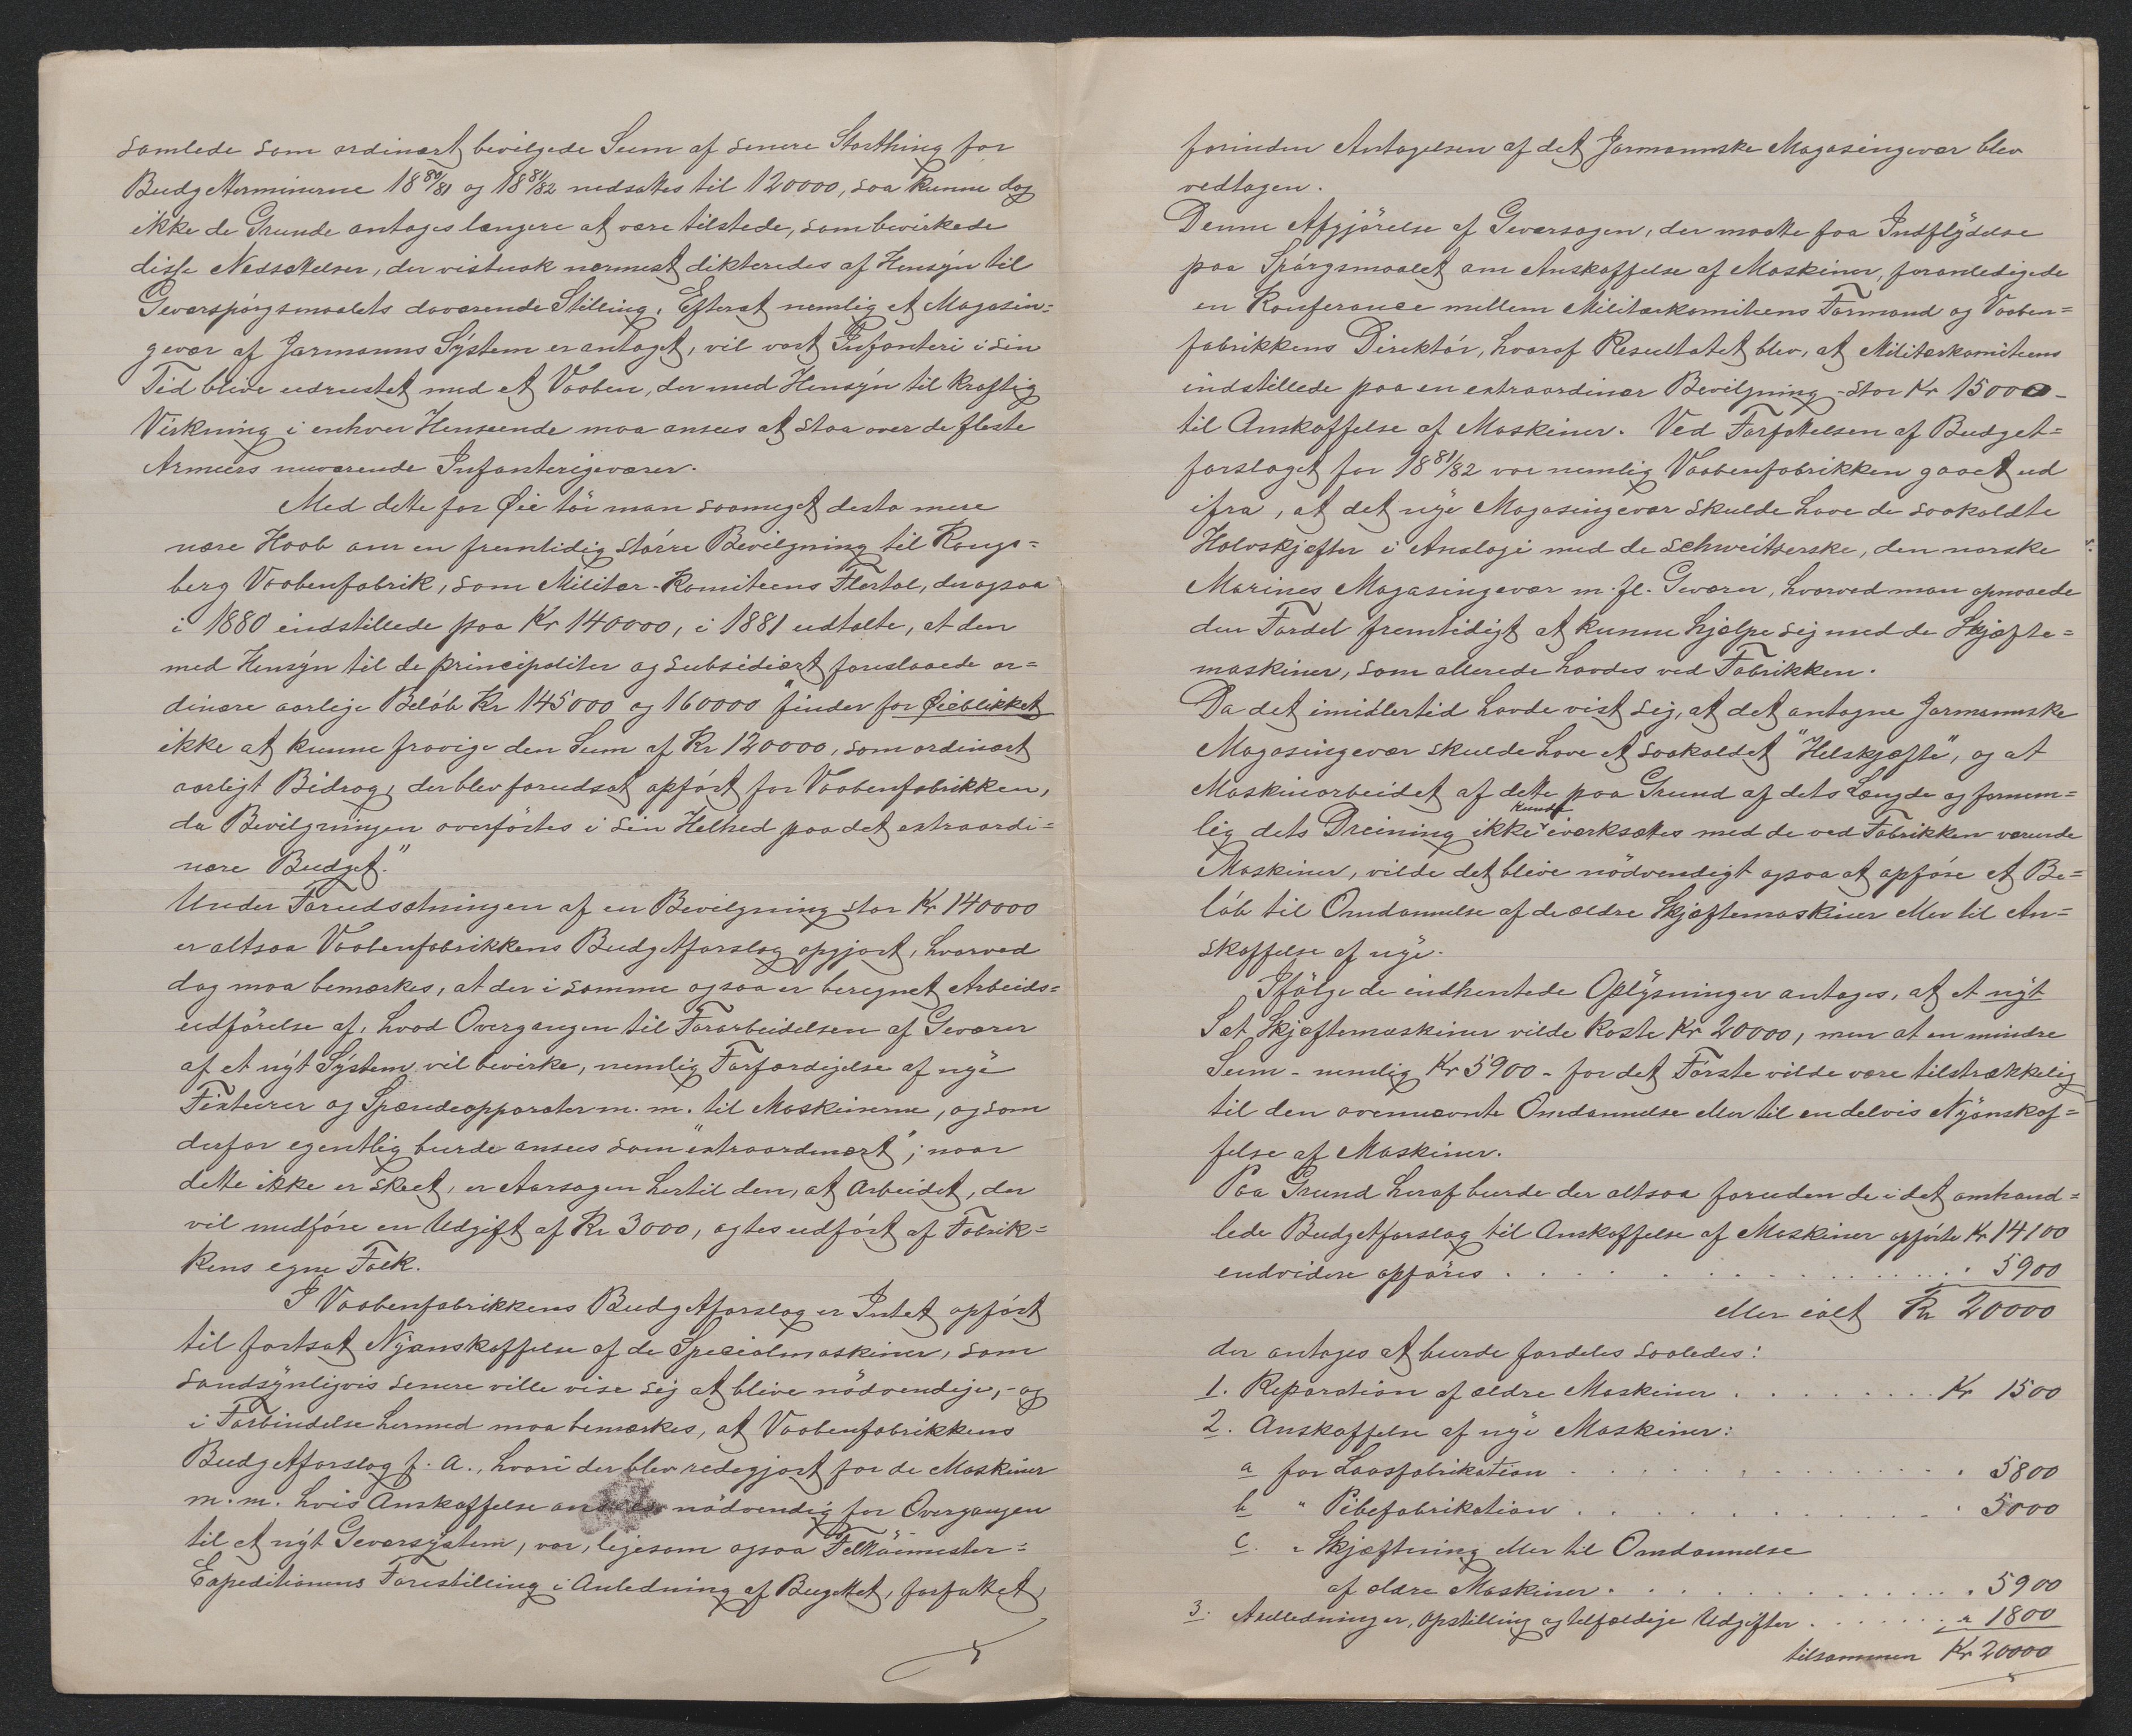 samlede som ordinært bevilgede Sum af senere Storthing for
Budgetterminerne 18 80/81 og 18 81/82 nedsattes til 120000, saa kunne dog
ikke de Grunde antages længere at være tilstede, som bevirkede
disse Nedsættelser, der vistnok nærmest dikteredes af Hensyn til
Geværspørgsmaalets daværende Stilling. Efterat nemlig et Magasin=
gevær af Jarmanns System er antaget, vil vort Infanteri i sin
Tid blive udrustet med et Vaaben, der med Hensyn til kraftig
Virkning i enhver Henseende maa ansees at staa over de fleste
Armeers nuværende Infanterigeværer.
Med dette for Øie tör man saameget desto mere
nære Haab om en fremtidig större Bevilgning til Kongs=
berg Vaabenfabrik, som Militær-Komiteens Flertal, der ogsaa
i 1880 indstillede paa Kr 140000, i 1881 udtalte, at den
med Hensyn til de principaliter og subsidiært foreslaaede or=
dinære aarlige Belöb Kr 145000 og 160000 "finder for Øieblikket
ikke at kunne fravige den Sum af Kr 120000, som ordinært
aarligt Bidrag, der blev forudsat opfört for Vaabenfabrikken,
da Bevilgningen overförtes i sin Helhed paa det extraordi=
nære Budget."
Under Forudsætningen af en Bevilgning stor Kr 140000
er altsaa Vaabenfabrikkens Budgetforslag opgjort, hvorved
dog maa bemærkes, at der i samme ogsaa er beregnet Arbeids=
udförelse af, hvad Overgangen til Forarbeidelsen af Geværer
af et nyt System vil bevirke, nemlig Forfærdigelse af nye
Fixturer og Spændeapparater m. m. til Maskinerne, og som
derfor egentlig burde ansees som "extraordinært"; naar
dette ikke er skeet, er Aarsagen hertil den, at Arbeidet, der
vil medföre en Udgift af Kr 3000, agtes udfört af Fabrik=
kens egne Folk.
I Vaabenfabrikkens Budgetforslag er Intet opfört
til fortsat Nyanskaffelse af de Specialmaskiner, som
sandsynligvis senere ville vise sig at blive nödvendige, - og
i Forbindelse hermed maa bemærkes, at Vaabenfabrikkens
Budgetforslag f. A., hvori der blev redegjort for de Maskiner
m. m. hvis Anskaffelse nödvendig for Overgangen
til et nyt Geværsystem, var, ligesom ogsaa Feltöimester=
Expeditionens Forestilling i Anledning af Bugettet, forfattet,
forinden Antagelsen af det Jarmannske Magasingevær blev
vedtagen.
Denne Afgjörelse af Geværsagen, der maatte faa Indflydelse
paa Spörgsmaalet om Anskaffelse af Maskiner, foranledigede
en Konferance mellem Militærkomiteens Formand og Vaaben=
fabrikkens Direktör, hvoraf Resultatet blev, at Militærkomiteens
indstillede paa en extraordinær Bevilgning - stor Kr 15000 -
til Anskaffelse af Maskiner. Ved Forfattelsen af Budget=
forslaget for 18 81/82 var nemlig Vaabenfabrikken gaaet ud
ifra, at det nye Magasingevær skulde have de saakaldte
Halvskjæfter i Analogi med de schweitserske, den norske
Marines Magasingevær m. fl. Geværer, hvorved man opnaaede
den Fordel fremtidigt at kunne hjælpe sig med de Skjæfte=
maskiner, som allerede havdes ved Fabrikken.
Da det imidlertid havde vist sig, at det antagne Jarmannske
Magasingevær skulde have et saakaldet "Helskjæfte", og at
Maskinarbeidet af dette paa Grund af dets Længde og fornem=
lig dets Dreining ikke kunde iværksættes med de ved Fabrikken værende
Maskiner, vilde det blive nödvendigt ogsaa at opföre et Be=
löb til Omdannelse af de ældre Skjæftemaskiner eller til An=
skaffelse af nye.
Ifölge de indhentede Oplysninger antages, at et nyt
Sæt Skjæftemaskiner vilde koste Kr 20000, men at en mindre
Sum - nemlig Kr 5900 - for det Förste vilde være tilstrækkelig
til den ovennævnte Omdannelse eller til en delvis Nyanskaf=
felse af Maskiner.
Paa Grund heraf burde der altsaa foruden de i det omhand=
lede Budgetforslag til Anskaffelse af Maskiner opförte Kr 14100
endvidere opföres . . . . . . 5900
eller ialt Kr 20000
der antages at burde fordeles saaledes:
1. Reparation af ældre Maskiner . . . . . . Kr 1500
2. Anskaffelse af nye Maskiner:
a for Laasfabrikation . . . . . . 5800
b " Pibefabrikation . . . . . . 5000
c. " Skjæftning eller til Omdannelse
af ældre Maskiner . . . . . . 5900
3. Akselledninger, Opstilling og tilfældige Udgifter . . . . . . " 1800
tilsammen Kr 20000